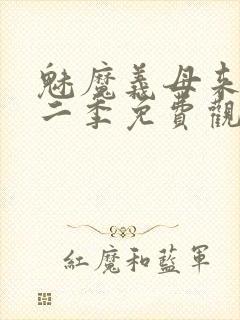 魅魔義母來
二季免費觀
紅魔和藍軍